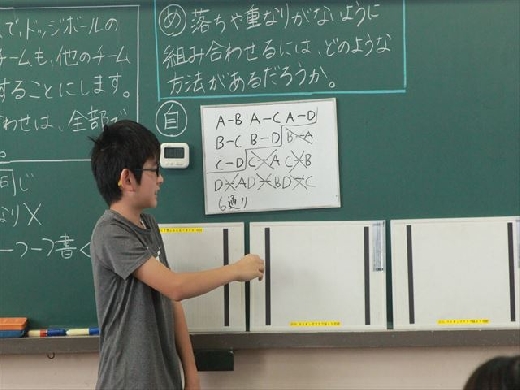 で、ドッジボールの
チームも、他のチーム
することにします。
わせは、全部で
め 落ちや重なりがないように
組み合わせるには、どのような
方法があるだろうか。
自
A-B A-C A-D
B-C B-D B-A
C-D C-A C-B
D-A D-B D-C
6通り
同じ
なりX
一つ一つ書く